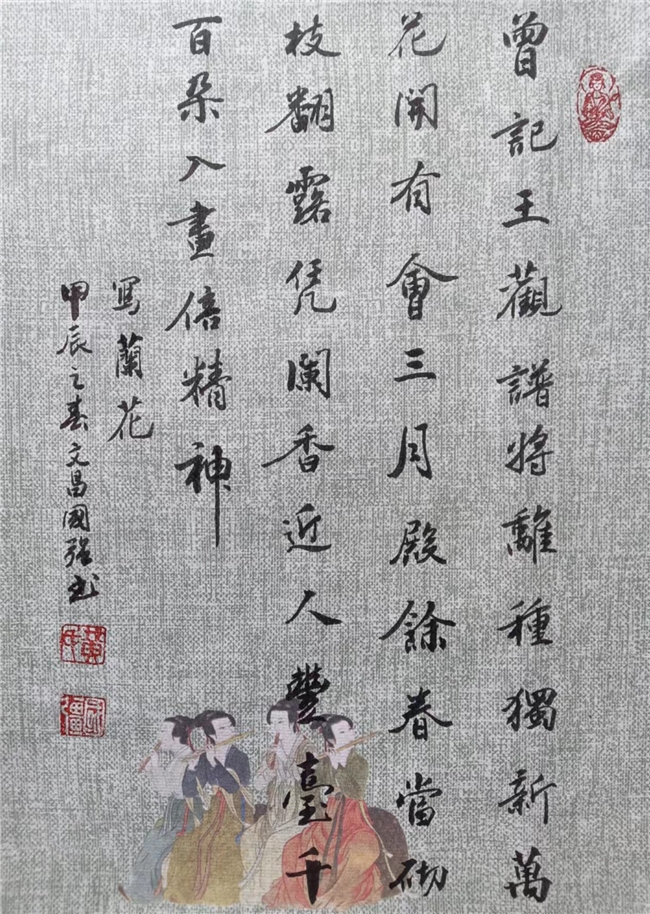 曾記王觀譜將離種獨新萬
花開有會三月殿餘春當砌
枝翻露凭闌香近人豐臺千
百朵入畫倍精神
寫蘭花
甲辰之春文昌國强书
黄氏